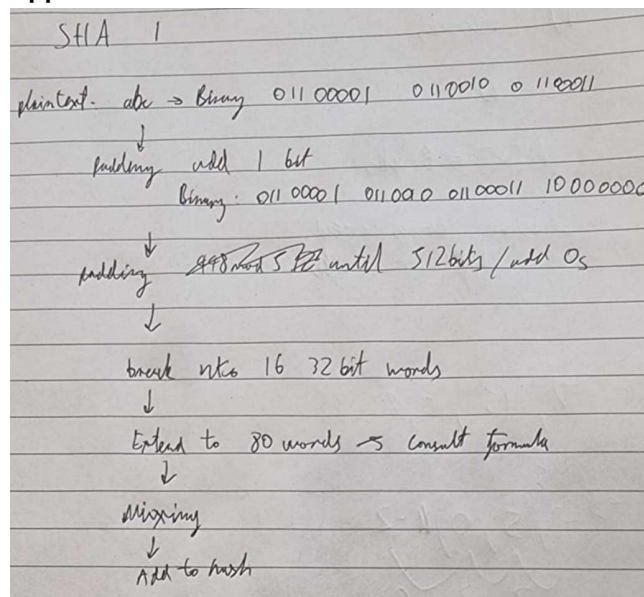 SHA 1
plaintext. abc → Binary 01100001 0110010 01100011
↓
padding add 1 bit
Binary. 0110 0001 011000 01100011 10000000
↓
padding until 512bits / add 0s
↓
break nto 16 32 bit words
↓
Extend to 80 words → consult formula
↓
Mixing
↓
Add to hash